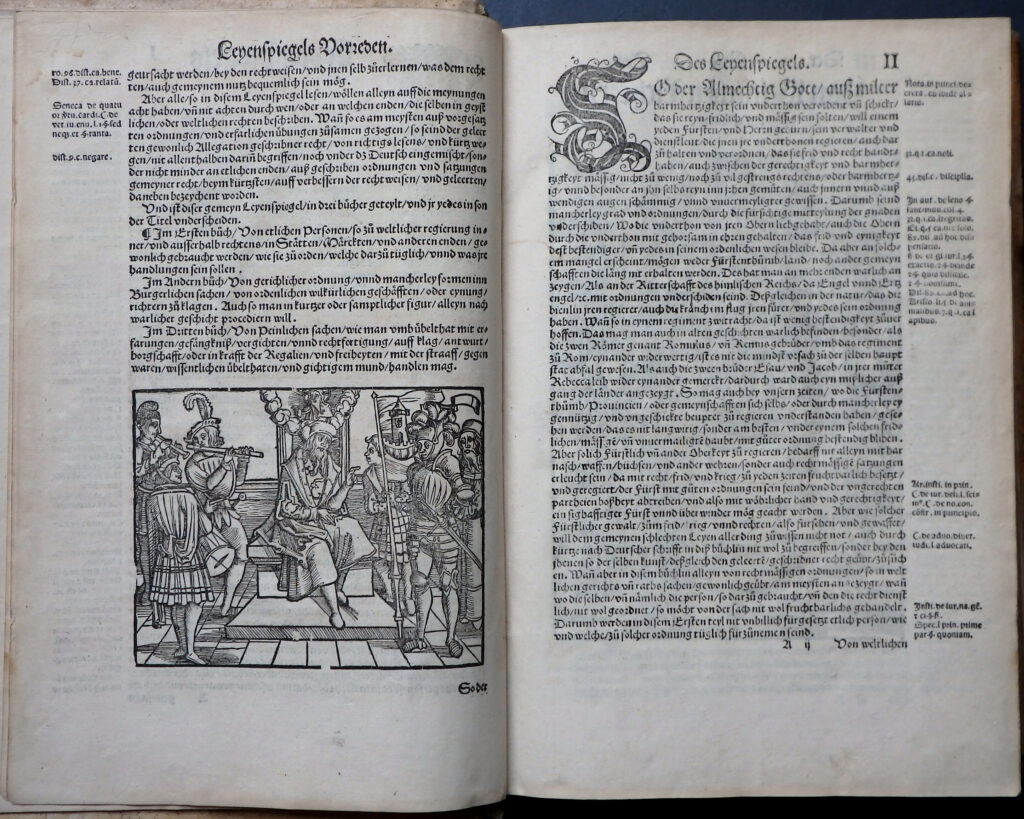 Leyenspiegels Vorreden.
geursacht werden/bey den recht weisen/vnd jnen selb zůerlernen/was dem recht
ten/auch gemeynem nutz bequemlich sein mög.
Aber alle/so in disem Leyenspiegel lesen/wöllen alleyn auff die meynungen
acht haben/vñ mit achten durch wen/oder an welchen enden/die selben in geyst
lichen/oder weltlichen rechten beschriben. Wañ so es am meysten auß vorgesatz
ten ordnungen/vnd erfarlichen übungen zůsamen gezogen/so seind der geleer
ten gewonlich Allegation geschribner recht/von richtigs lesens/vnd kürtz we/
gen/nit allenthalben dariñ begriffen/noch vnder dz Deutsch eingemischt/son/
der nicht minder an etlichen enden/auß geschriben ordnungen vnd satzungen
gemeyner recht/beym kürtzsten/auff verbessern der recht weisen/vnd geleerten/
daneben bezeychent worden.
Vnd ist diser gemeyn Leyenspiegel/in drei bücher geteylt/vnd jr yedes in son
der Titel vnderscheiden.
¶ Im Ersten bůch/Von etlichen Personen/so zů weltlicher regierung in/
ner/vnd ausserhalb rechtens/in Stätten/Märckten/vnd anderen enden/ge/
wonlich gebraucht werden/wie sie zů ordnen/welche darzů tüglich/vnnd was jre
handlungen sein sollen.
Im Andern bůch/Von gerichtlicher ordnung/vnnd mancherley formen inn
Bürgerlichen sachen/von ordenlichen wilkürlichen geschäfften/oder eynung/
richtern zů klagen. Auch so man in kurtzer oder samptlicher figur/alleyn nach
warlicher geschicht procediern will.
Im Dritten bůch/Von Peinlichen sachen/wie man vmb übelthat mit er/
farungen/gefängkniß/vergichten/vnnd rechtfertigung/auff klag/antwurt/
borgschafft/oder in krafft der Regalien/vnd freiheyten/mit der straaff/gegen
waren/wissentlichen übelthaten/vnd gichtigem mund/handlen mag.
So der
Seneca de quatu
dist. 9. c. negare.
Des Leyenspiegels. II
SO der Almechtig Gott/auß milter
barmhertzigkeyt sein vnderthon verordent vñ schickt/
das sie rey/fridlich/vnd mässig sein solten/will einem
yeden Fürsten/vnd Herrn gebürn/sein verwalter vnd
dienstleut/die jnen jre vnderthonen regieren/auch dar
zů halten vnd verordnen/das sie frid vnd recht handt/
haben/auch zwischen der gerechtigkeyt vnd barmher/
tzigkeyt mässig/nicht zů wenig/noch zů vil gestrengs rechtens/oder barmhertz
ig/vnnd besonder an jhn selbs reyn inn jrhen gemüten/auch jnnern vnnd auß
wendigen augen schämmig/vnnd vnuermeyligter gewissen. Darumb seind
mancherley grad vnd ordnungen/durch die fürsichtig mitteylung der gnaden
vnderschiden/Wo die vnderthon von jren Obern liebgehabt/auch die Obern
durch die vnderthon mit gehorsam in ehren gehalten/das frid vnd eynigkeyt
dest bestendiger/vñ yedes in seinem ordenlichen wesen bleibe. Da aber an solchs
em mangel erscheint/mögen weder Fürstenthumb/land/noch ander gemeyn
schafften die läng nit erhalten werden. Des hat man an mehr enden warlich an
zeygen/Als an der Ritterschafft des himlischen Reichs/da Engel vnnd Ertz
engel/ꝛc. mit ordnungen vnderschiden seind. Deßgleichen in der natur/das die
bienlin jren regierer/auch die kränch im flug jren fürer/vnd yedes sein ordnung
haben. Wañ so in eynem regiment zwitracht/da ist wenig bestendigkeyt zůuer
hoffen. Das mag man auch in alten geschichten warlich befinden/besonder/als
die zwen Römer genant Romulus/vñ Remus gebrüder/vmb das regiment
zů Rom/eynander widerwertig/ist es mit die mindst vrsach zů der selben haupt
stat abfal gewesen. Als auch die zween brüder Esau/vnd Jacob/in jrer můter
Rebecca leib wider eynander gemerckt/dardurch ward auch eyn mißlicher auß
gang der länder angezeygt. So mag auch bey vnsern zeiten/wo die Fürsten/
thumb/Prouincien/oder gemeynschafften sich selbs/oder durch mancherley ey
gennützig/vnd vngeschickte heupter zů regieren vnderstanden haben/gese/
hen werden/das es nit langwirig/sonder am besten/vnder eynem solchen frid/
lichen/mässigē/vñ vnuermailigtē haubt/mit gůter ordnung bestendig bliben.
Aber solich Fürsten vnd ander Oberkeyt zů regieren/bedarff nit alleyn mit har
nasch/waffen/buchsen/vnd ander wehren/sonder auch recht mässige satzungen
erleucht sein/da mit recht/frid/vnd krieg/zů yeden zeiten fruchtbarlich besetzt/
vnd geregiert/der Fürst mit gůten ordnungen sein feind/vnd der vngerechten
partheien boßheyt abtreiben/vnd also mit wöblicher hand vnd gerechtigkeyt/
ein sighaffrigter Fürst vnnd überwinder mög geacht werden. Aber wie solcher
Fürstlicher gewalt/zům frid/krieg/vnnd rechten/also fürsehen/vnd gewaffet/
will dem gemeynen schlechten Leyen aller ding zů wissen nicht not/auch durch
kürtz nach Deutscher schrifft in diß büchlin nit wol zů begreiffen/sonder bey den
jhenen so der selben kunst/deßgleich den geleerte/geschribner recht geübt/zů sůch
en. Wañ aber in disem büchlin alleyn von recht mässigen ordnungen/so in welt
lichen gerichts vñ raths sachen/gewonlich geübt/am meysten angezeygt/wañ
wo die selben/vñ nämlich die person/so dar zů gebraucht/vñ den die recht dienst
lich/nit wol geordnet/so möcht von der sach nit wol fruchtbarlichs gehandelt.
Darumb werden in disem Ersten teyl nit vnbillich fürgesetzt etlich person/wie
vnd welche/zů solcher ordnung tüglich fürzůnemen seind.
A ij Von weltlichen
C. de aduo. diuer.
iudi. l. aduocati.
par. quoniam.